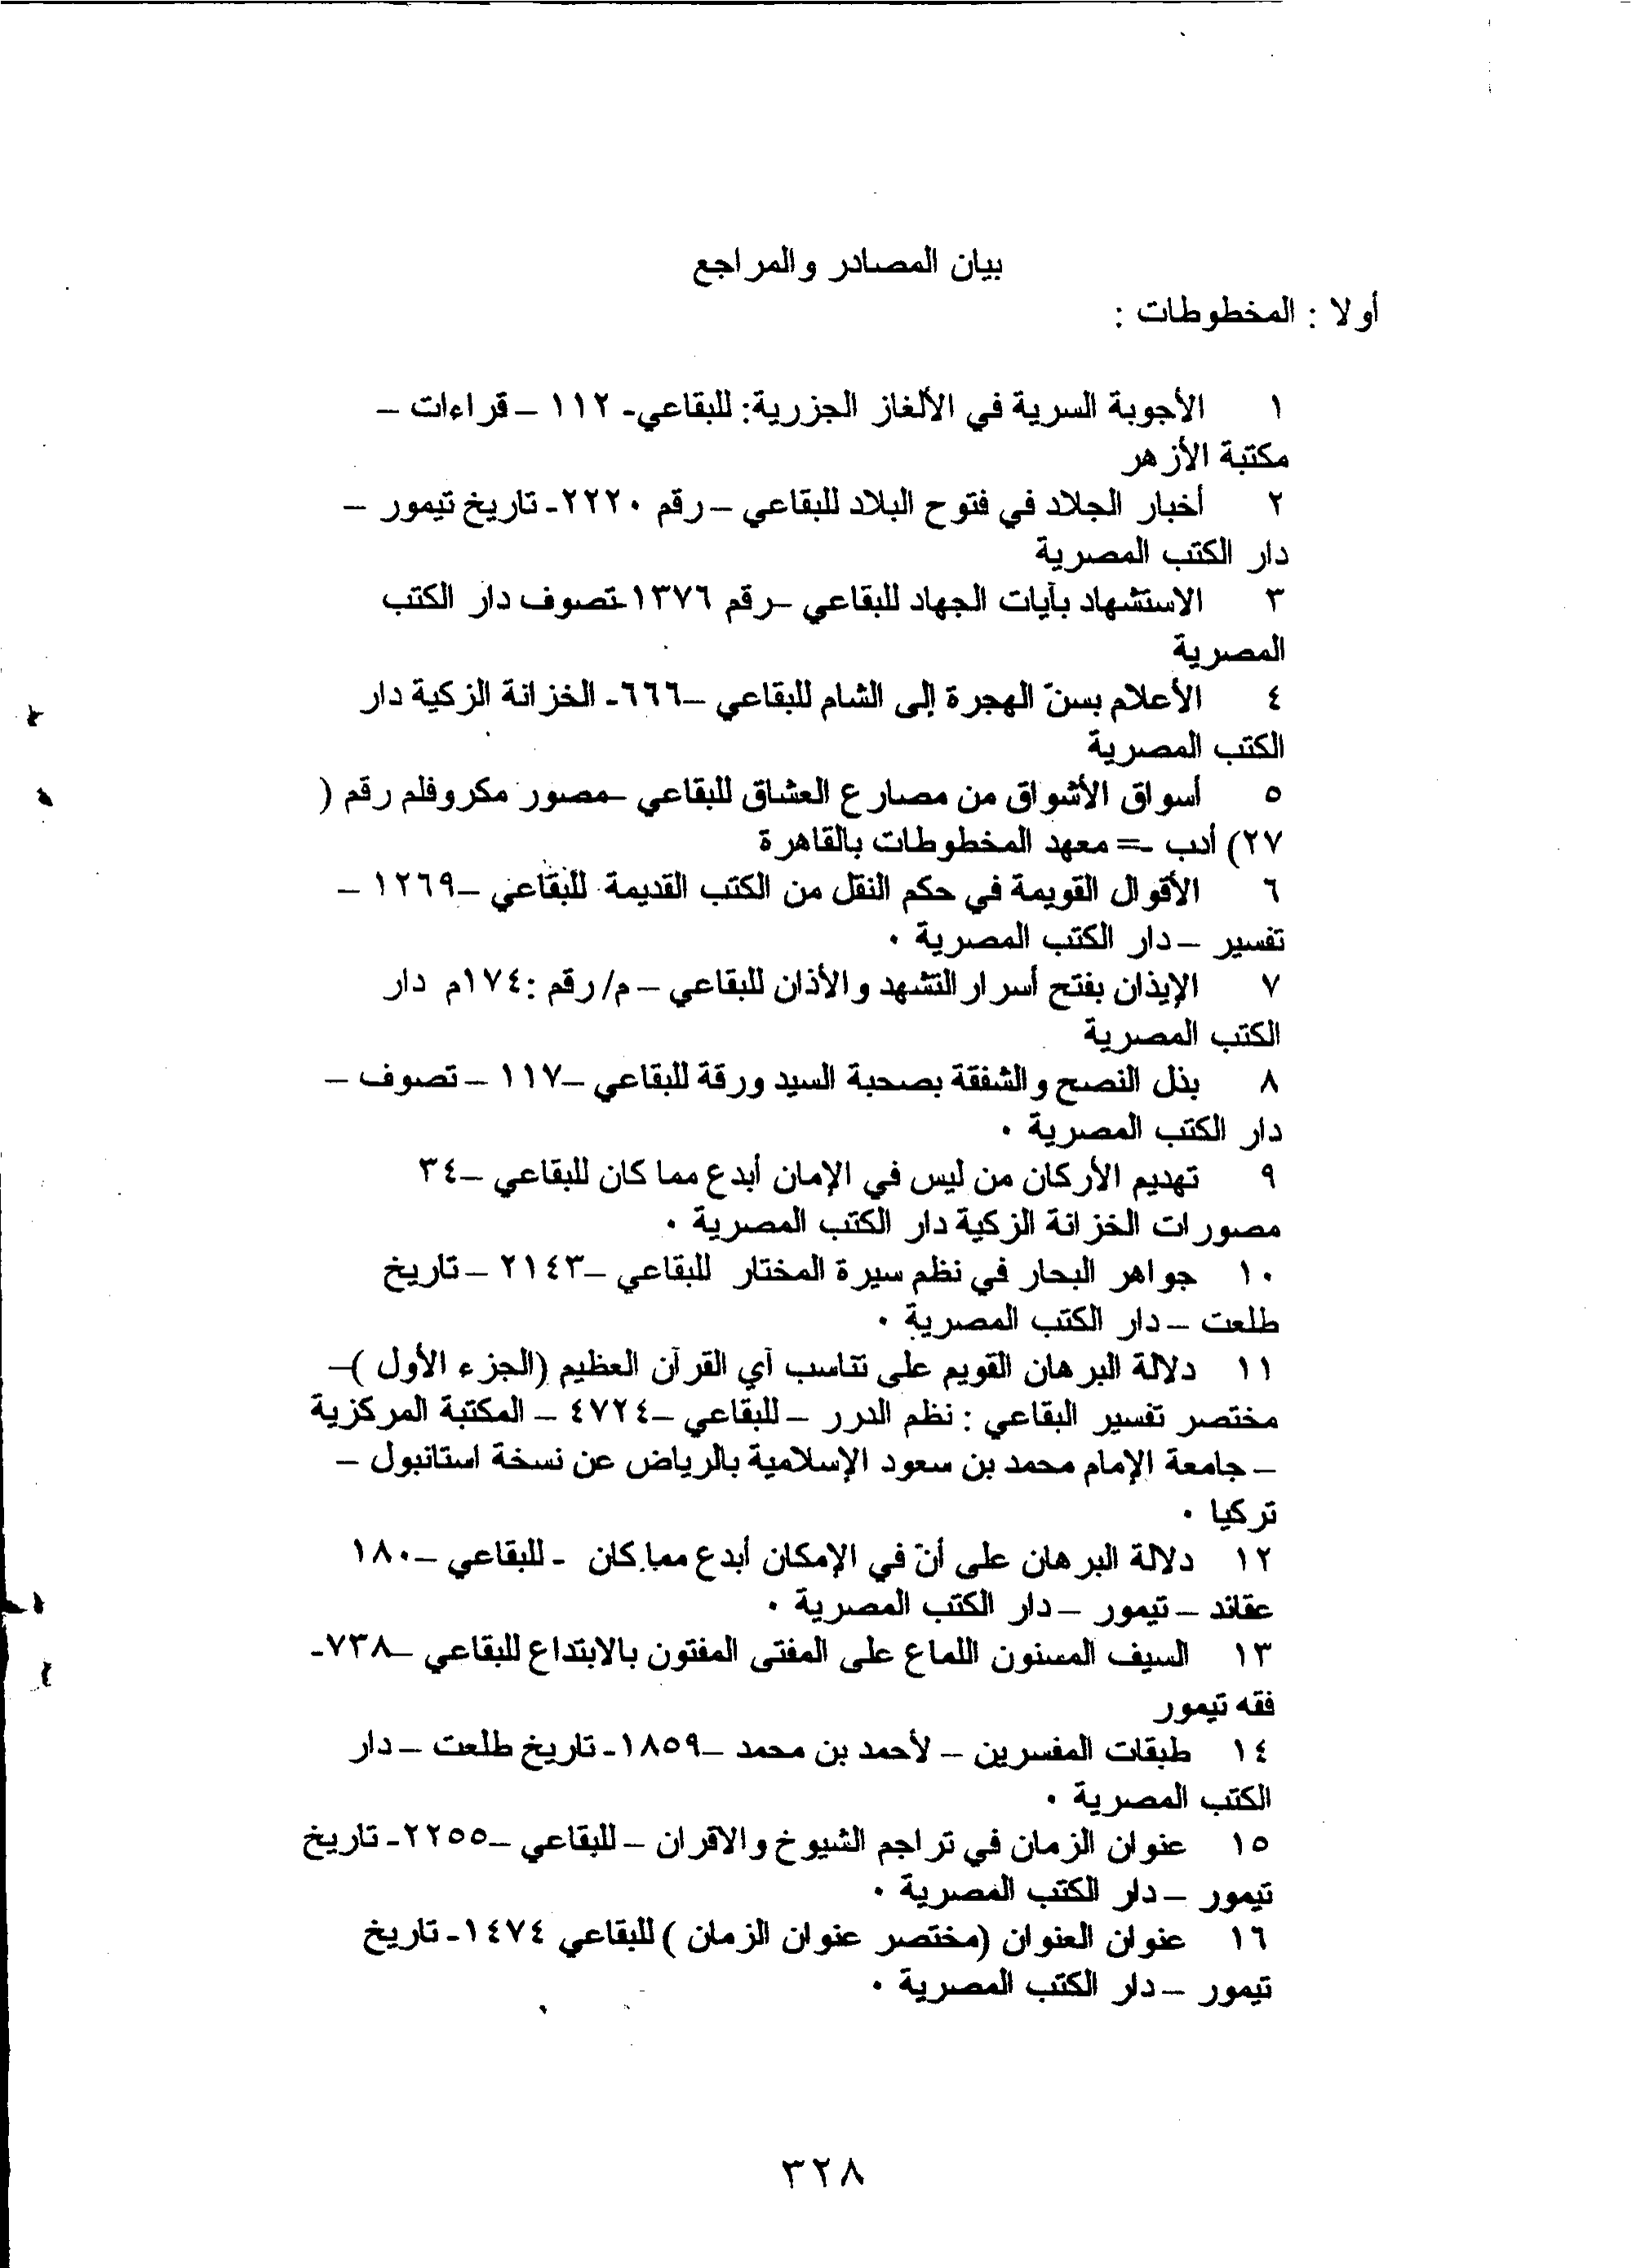 بيان المصادر والمراجع
أولا : المخطوطات :
١ الأجوبة السرية في الألغاز الجزرية: للبقاعي- ١١٢ – قراءات –
مكتبة الأزهر
٢ أخبار الجلاد في فتوح البلاد للبقاعي – رقم ٢٢٢٠- تاريخ تيمور –
دار الكتب المصرية
٣ الاستشهاد بآيات الجهاد للبقاعي –رقم ١٣٧٦-تصوف دار الكتب
المصرية
٤ الأعلام بسنّ الهجرة إلى الشام للبقاعي –٦٦٦- الخزانة الزكية دار
الكتب المصرية
٥ أسواق الأشواق من مصارع العشاق للبقاعي –مصور مكروفلم رقم (
٢٧) أدب -= معهد المخطوطات بالقاهرة
٦ الأقوال القويمة في حكم النقل من الكتب القديمة للبقاعي –١٢٦٩ –
تفسير – دار الكتب المصرية ٠
٧ الإيذان بفتح أسرار التشهد والأذان للبقاعي – م/ رقم :١٧٤م دار
الكتب المصرية
٨ بذل النصح والشفقة بصحبة السيد ورقة للبقاعي –١١٧ – تصوف –
دار الكتب المصرية ٠
٩ تهديم الأركان من ليس في الإمان أبدع مما كان للبقاعي –٣٤
مصورات الخزانة الزكية دار الكتب المصرية ٠
١٠ جواهر البحار في نظم سيرة المختار للبقاعي –٢١٤٣ – تاريخ
طلعت – دار الكتب المصرية ٠
١١ دلالة البرهان القويم على تناسب آي القرآن العظيم (الجزء الأول )–
مختصر تفسير البقاعي : نظم الدرر – للبقاعي –٤٧٢٤ – المكتبة المركزية
– جامعة الإمام محمد بن سعود الإسلامية بالرياض عن نسخة استانبول –
تركيا ٠
١٢ دلالة البرهان على أنّ في الإمكان أبدع مما كان - للبقاعي –١٨٠
عقائد – تيمور – دار الكتب المصرية ٠
١٣ السيف المسنون اللماع على المفتى المفتون بالابتداع للبقاعي –٧٣٨-
فقه تيمور
١٤ طبقات المفسرين – لأحمد بن محمد –١٨٥٩- تاريخ طلعت – دار
الكتب المصرية ٠
١٥ عنوان الزمان في تراجم الشيوخ والاقران – للبقاعي –٢٢٥٥- تاريخ
تيمور – دار الكتب المصرية ٠
١٦ عنوان العنوان (مختصر عنوان الزمان ) للبقاعي ١٤٧٤- تاريخ
تيمور – دار الكتب المصرية ٠
٣٢٨